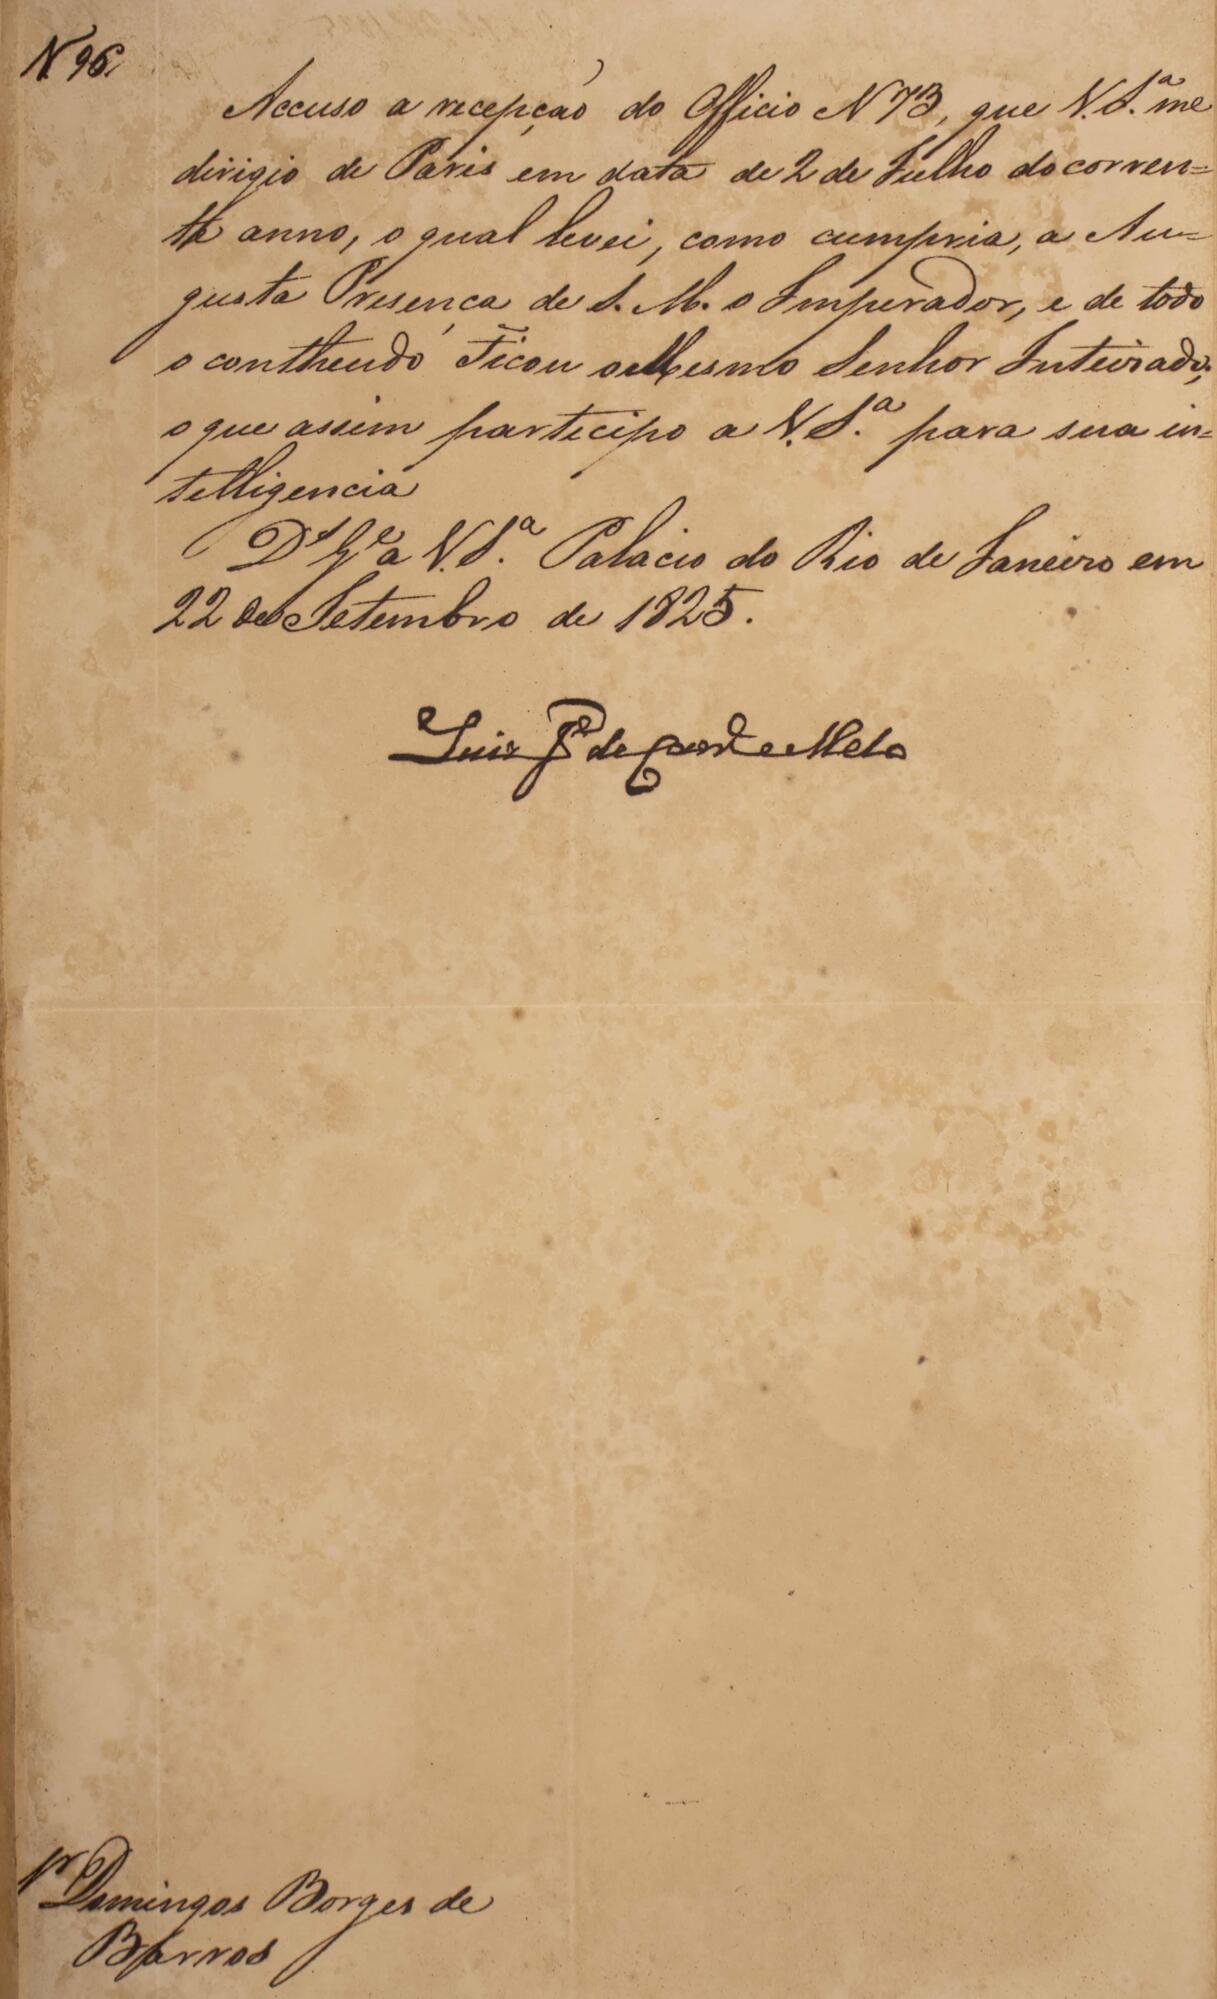 N 96.
Accuso a recepção do Officio N 73, que V. S.ª me
dirigio de Paris em data de 2 de Julho do corren=
te anno, o qual levei, como cumpria, a Au=
gusta Presença de S. M. o Imperador, e de todo
o contheudo ficou o Mesmo Senhor Inteirado;
o que assim participo a V. S.ª para sua in=
telligencia
D.s G.e a V. S.ª Palacio do Rio de Janeiro em
22 de Setembro de 1825.
Luis Je de Carv.o e Mello
Sr Domingos Borges de
Barros